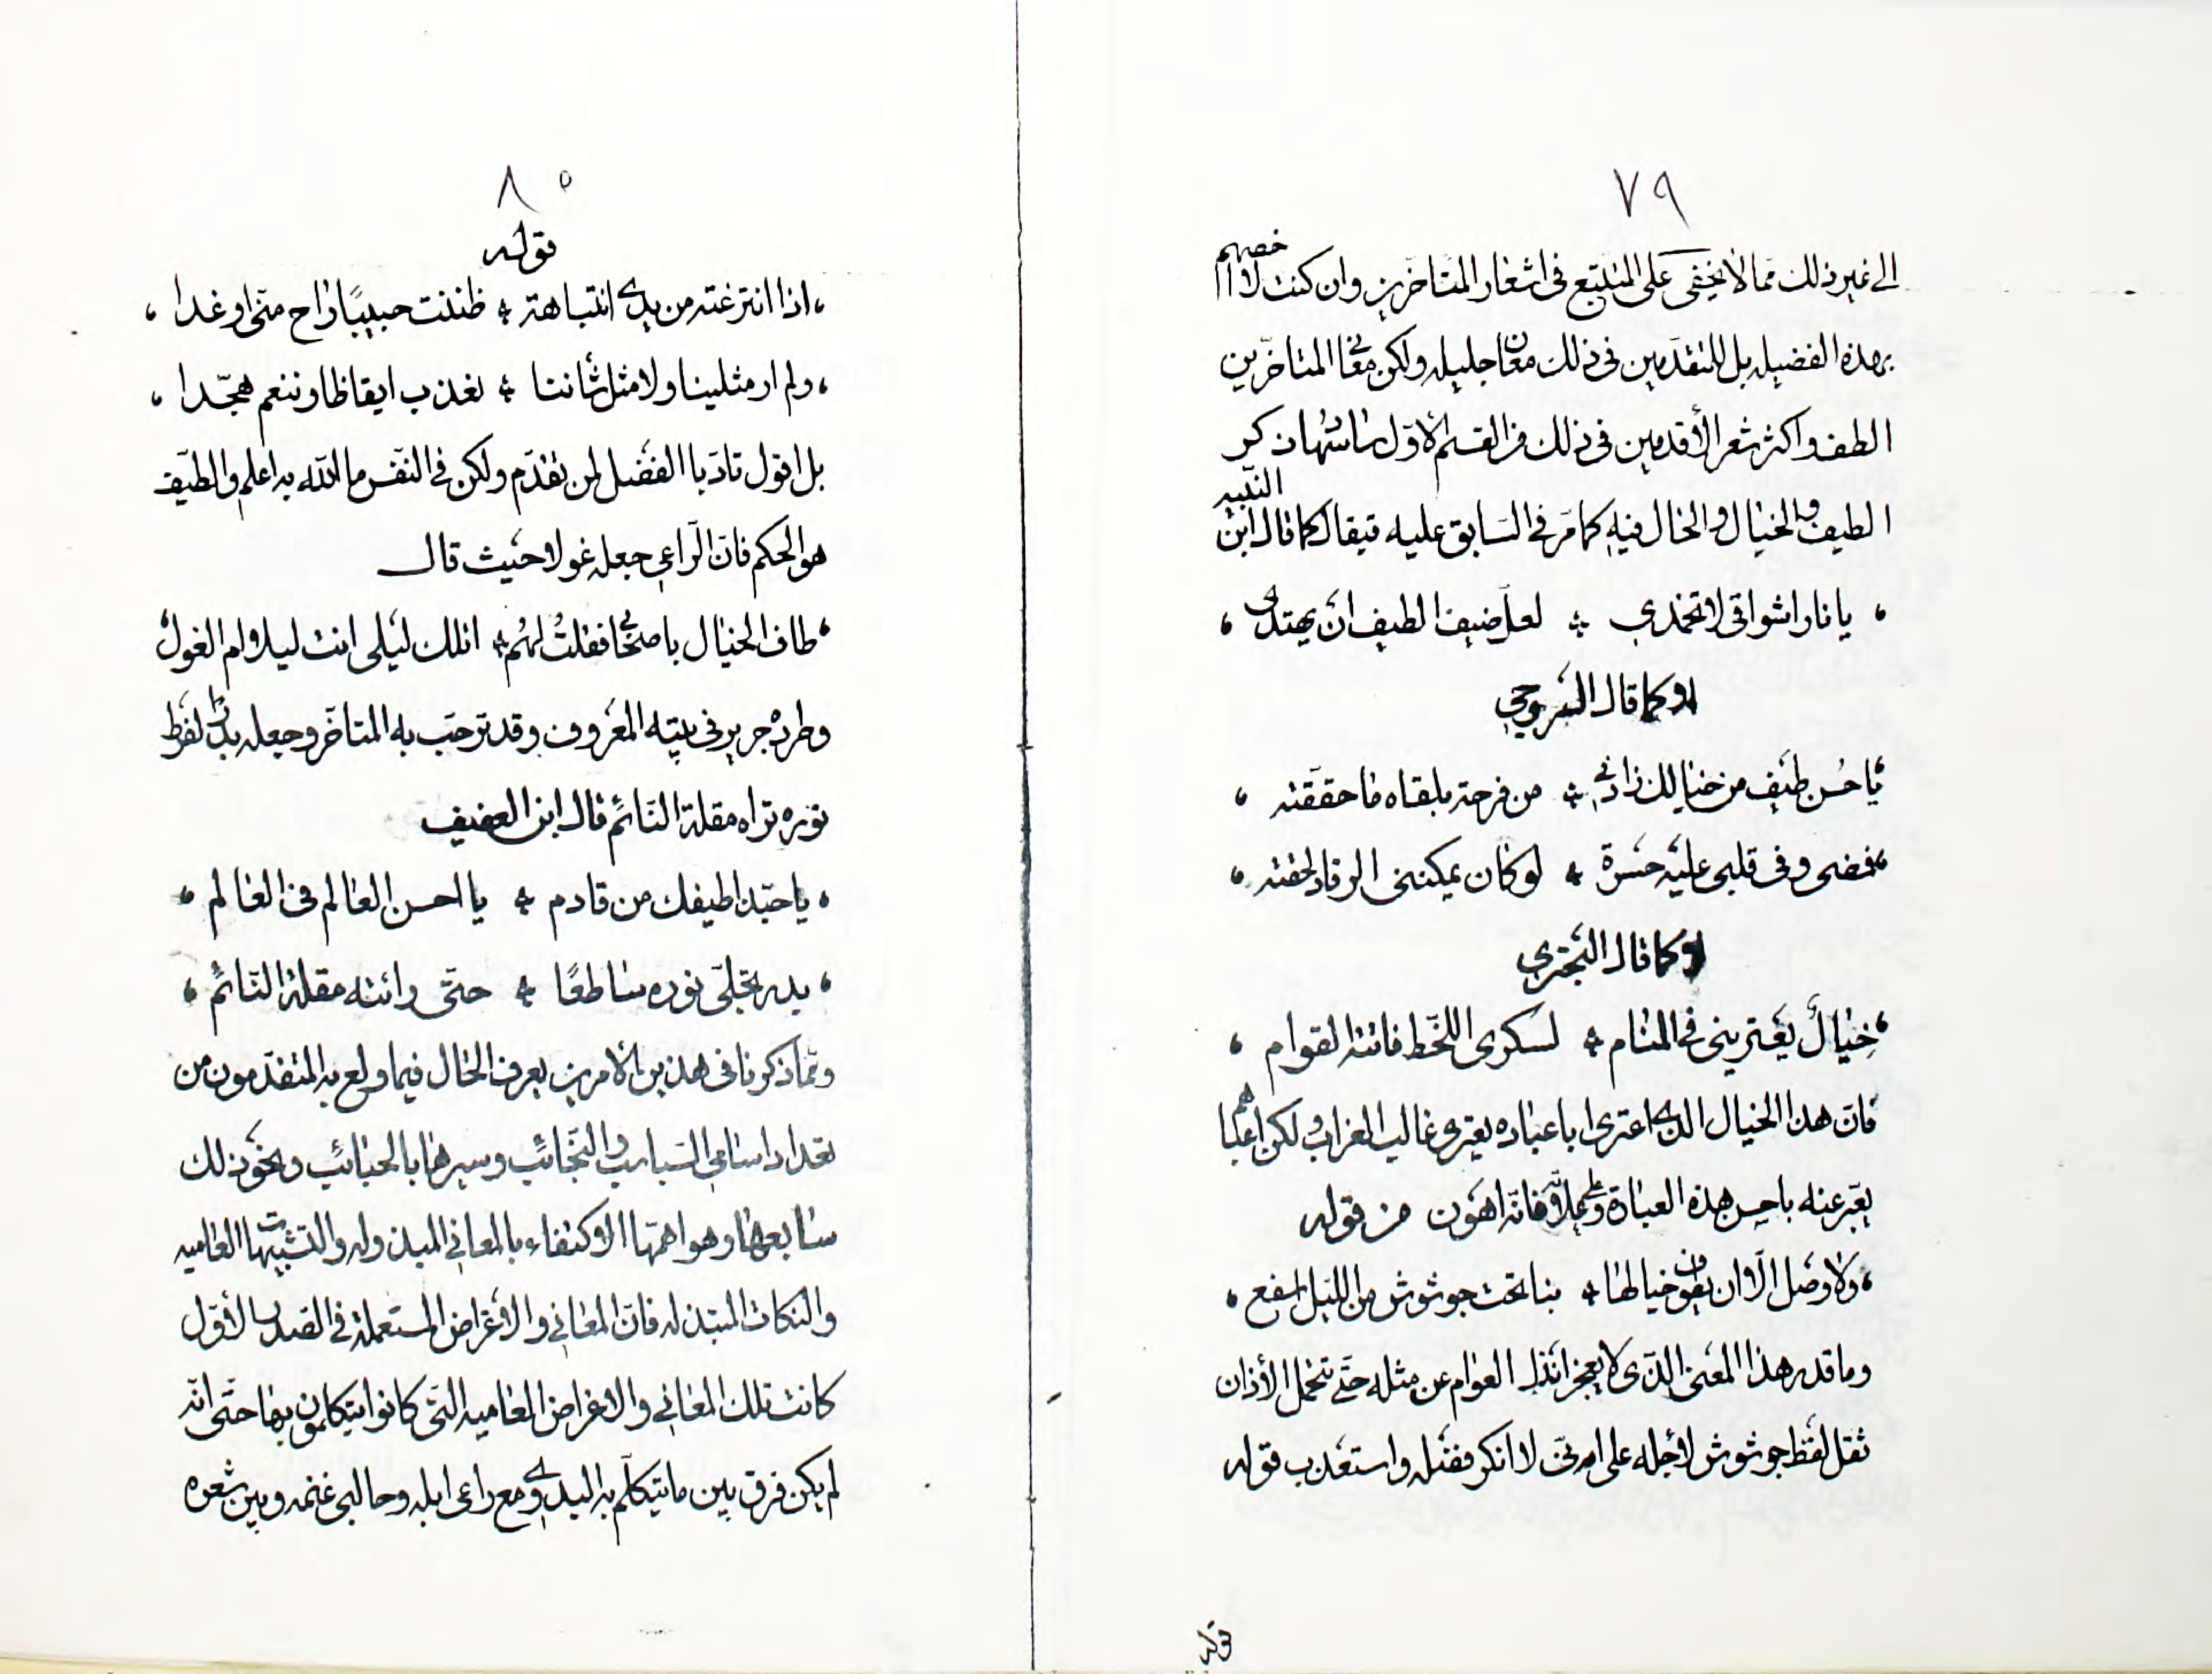 ٧٩
الى غير ذلك مما لا يخفى على المتتبع فى اشعار المتاخرين وان كنت لا اخصهم
بهذه الفضيله بل للمتقدمين فى ذلك معان جليله ولكن معانى المتاخرين
الطف واكثر شعر الأقدمين فى ذلك من القسم الاول ذكر
الطيف والخيال والخال فيه كما مر فى السابق عليه فيقال كما قال ابن النبيه
يا نار اشواقى لا تخمدي ٭ لعل ضيف الطيف ان يهتدى
او كما قال السروجي
يا حسن طيف من خيالك زارني ٭ من فرحتى بلقاه ما حققته
فمضى وفى قلبى عليه حسرة ٭ لو كان يمكننى الرقاد لحقته
او كما قال البحتري
خيالٌ يعترينى فى المنام ٭ لسكرى اللحظ فاتنة القوام
فان هذا الخيال الذى اعترى ابا عباده يعترى غالب العزاب ولكن اغلبهم
يعبر عنه باحسن هذه العبارة فانه اهون من قوله
ولا وصل الا ان يطوف خيالها ٭ بنا تحت جوشوش من الليل اسفع
وما قدر هذا المعنى الذى لا يعجز انذل العوام عن مثله حتى تتحمل الأذان
ثقل لفظ جوشوش لأجله على انى لا انكر فضله واستعذب قوله
قوله
٨٠
قوله
اذا انتزعته من يدى انتباهة ٭ ظننت حبيبًا راح منى او غدا
ولم ار مثلينا ولا مثل شاننا ٭ نعذب ايقاظا وننعم هجّدا
بل اقول تادبا الفضل لمن تقدم ولكن فى النفس ما الله به اعلم والطيف
هو الحكم فان الراعي جعله غولا حيث قال
طاف الخيال باصحابى فقلتُ لهُم ٭ اتلك ليلى انت ليلا ام الغول
وطرده جرير فى بيته المعروف وقد ترحب به المتاخر وجعله بدرا لفرط
نوره تراه مقلة النائم قال ابن العفيف
يا حبذا طيفك من قادم ٭ يا احسن العالم فى العالم
بدر تجلى نوره ساطعًا ٭ حتى رائته مقلة النائم
ومما ذكرنا فى هذين الامرين يعرف الحال فيما ولع به المتقدمون من
تعداد اسامي السباسب والنجائب وسيرها بالحبائب ونحو ذلك
سابعها وهو اهمها الاكتفاء بالمعاني المبذوله والتشبيهات العاميه
والنكات المبتذله فان المعاني والاغراض المستعملة فى الصدر الأول
كانت تلك المعاني والاغراض العاميه التى كانوا يتكلمون بها حتى انه
لم يكن فرق بين ما يتكلم به البدوي مع راعى ابله وحالبى غنمه وبين شعره